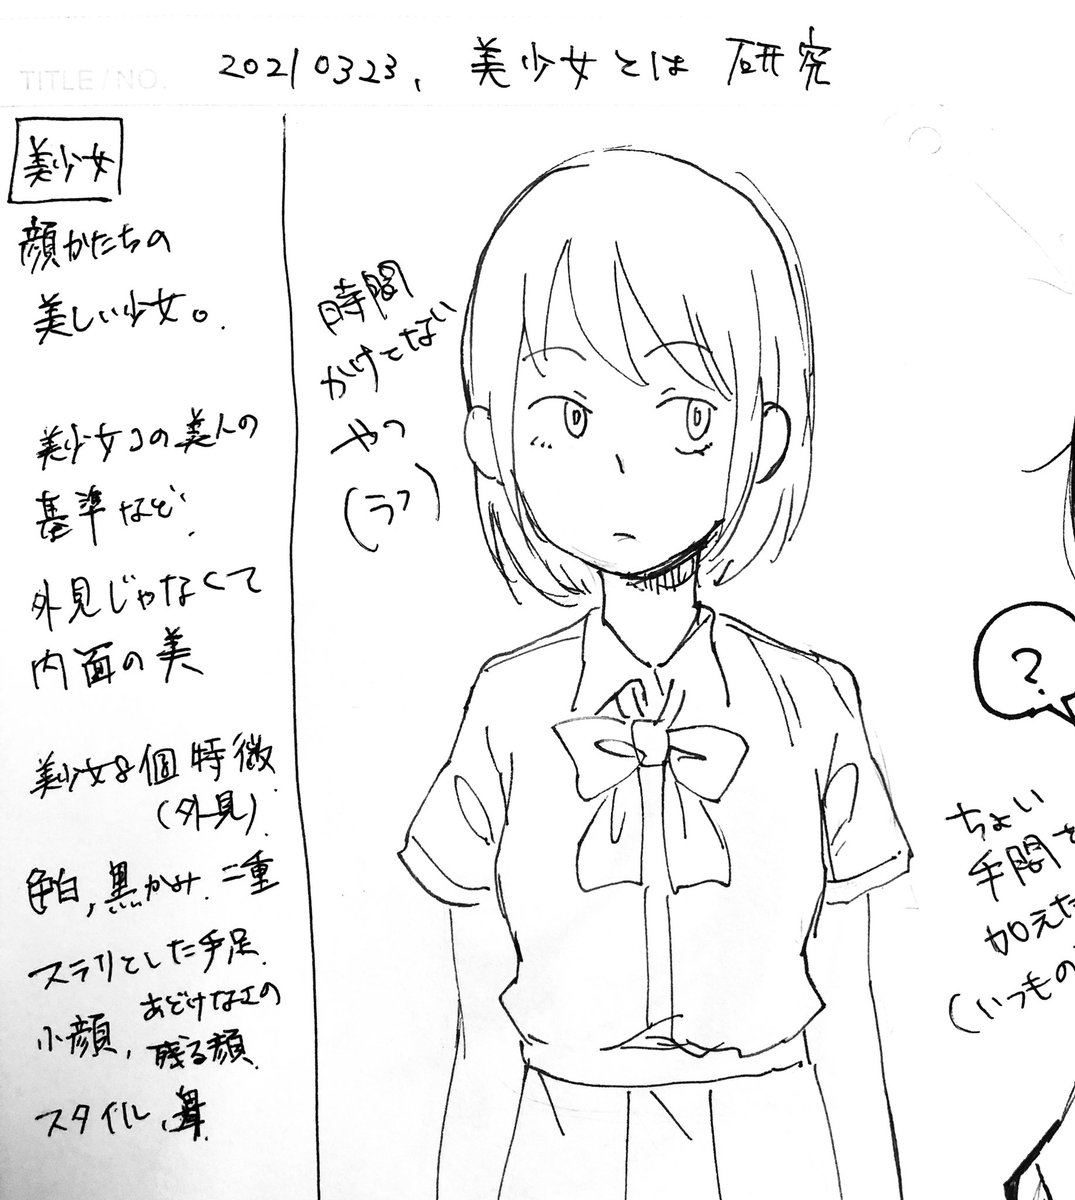 TITLE/NO.
20210323, 美少女とは 研究
美少女
顔かたちの
美しい少女。
美少女の美人の
基準など
外見じゃなくて
内面の美
美少女8個特徴
(外見)
色白,黒かみ.二重
スラリとした手足
小顔,あどけなさの
残る顔
スタイル,鼻.
時間
かけてない
やつ
(ラフ)
?
ちょい
手間を
加えた
(いつもの